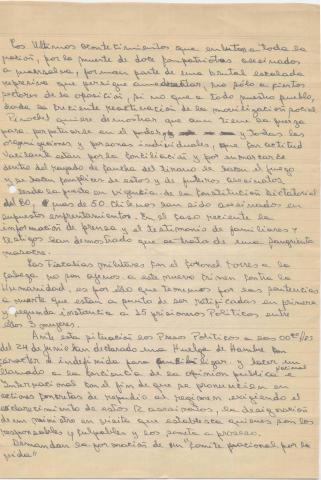 Los Ultimos acontecimientos que enlutan a toda la
nación, por la muerte de doce compatriotas asesinados
a mansalva, forman parte de una brutal escalada
represiva que persigue amedrentar, no sólo a ciertos
sectores de la oposición, si no que a todo nuestro pueblo,
dada la creciente reactivación de la movilización social.
Pinochet quiere demostrar que aun tiene la fuerza
para perpetuarse en el poder, y todas las
organizaciones y personas individuales, que con actitud
vacilante estan por la conciliación y por enmarcarse
dentro del rayado de cancha del tirano le hacen el juego
y se hacen complices de estos y de futuros asesinatos.
Desde la puesta en vigencia de la constitución dictatorial
del 80, mas de 50 Chilenos han sido asesinados en
supuestos enfrentamientos. En el caso reciente la
información de prensa y el testimonio de familiares y
testigos han demostrado que se trata de una sangrienta
masacre.
Las Fiscalias militares con el coronel Torres a la
cabeza no son ajenos a este nuevo crimen contra la
Humanidad, es por ello que tememos por las sentencias
a muerte que estan a punto de ser ratificadas en primera
y segunda instancia a 15 prisioneros Politicos entre
ellos 3 mujeres.
Ante esta situación los Presos Politicos a las 00⁰⁰ hrs
del 24 de Junio han declarado una Huelga de Hambre con
caracter de indefinida para y hacer un
llamado a la conciencia de la opinión publica Nacional
e Internacional con el fin de que se pronuncien en
acciones concretas de repudio al regimen, exigiendo el
esclarecimiento de estos 12 asesinatos, la designación
de un ministro en visita que establezca quienes son los
responsables y culpables y los someta a proceso.
Demandan la formación de un "Comite nacional por la
vida"